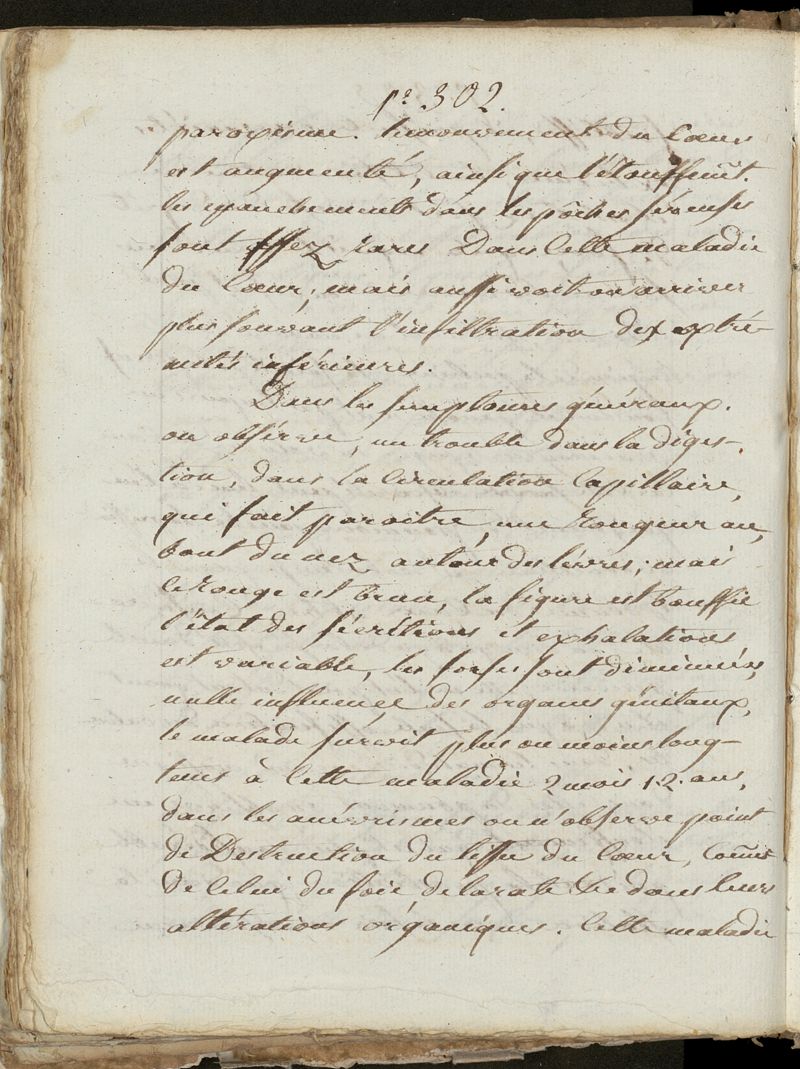 pe. 302.
paroxisme. le mouvement du Coeur
est augmenté, ainsi que l'étouffemt.
les epanchements dans les pôches séreuses
sont assez rares Dans Cette maladie
du Coeur, mais aussi voit on arriver
plus souvant l'infiltration des extré-
mités inférieures.
Dans les simptomes généraux.
on observe, un trouble dans la diges-
tion, dans la Circulation Capillaire,
qui fait paroitre, une Rougeur au,
bout du nez autour des lèvres; mais
le Rouge est brun, la figure est bouffie
l'état des sécrétions et exhalations
est variable, les forses sont diminuées,
nulle influence des organes génitaux,
le malade survit plus ou moins long-
tems à Cette maladie 2 mois 12. ans,
dans les anévrismes on n'observe point
de Destruction du tissu du Coeur, Come
de Celui du foie, de la rate &c dans leurs
altérations organiques. Cette maladie